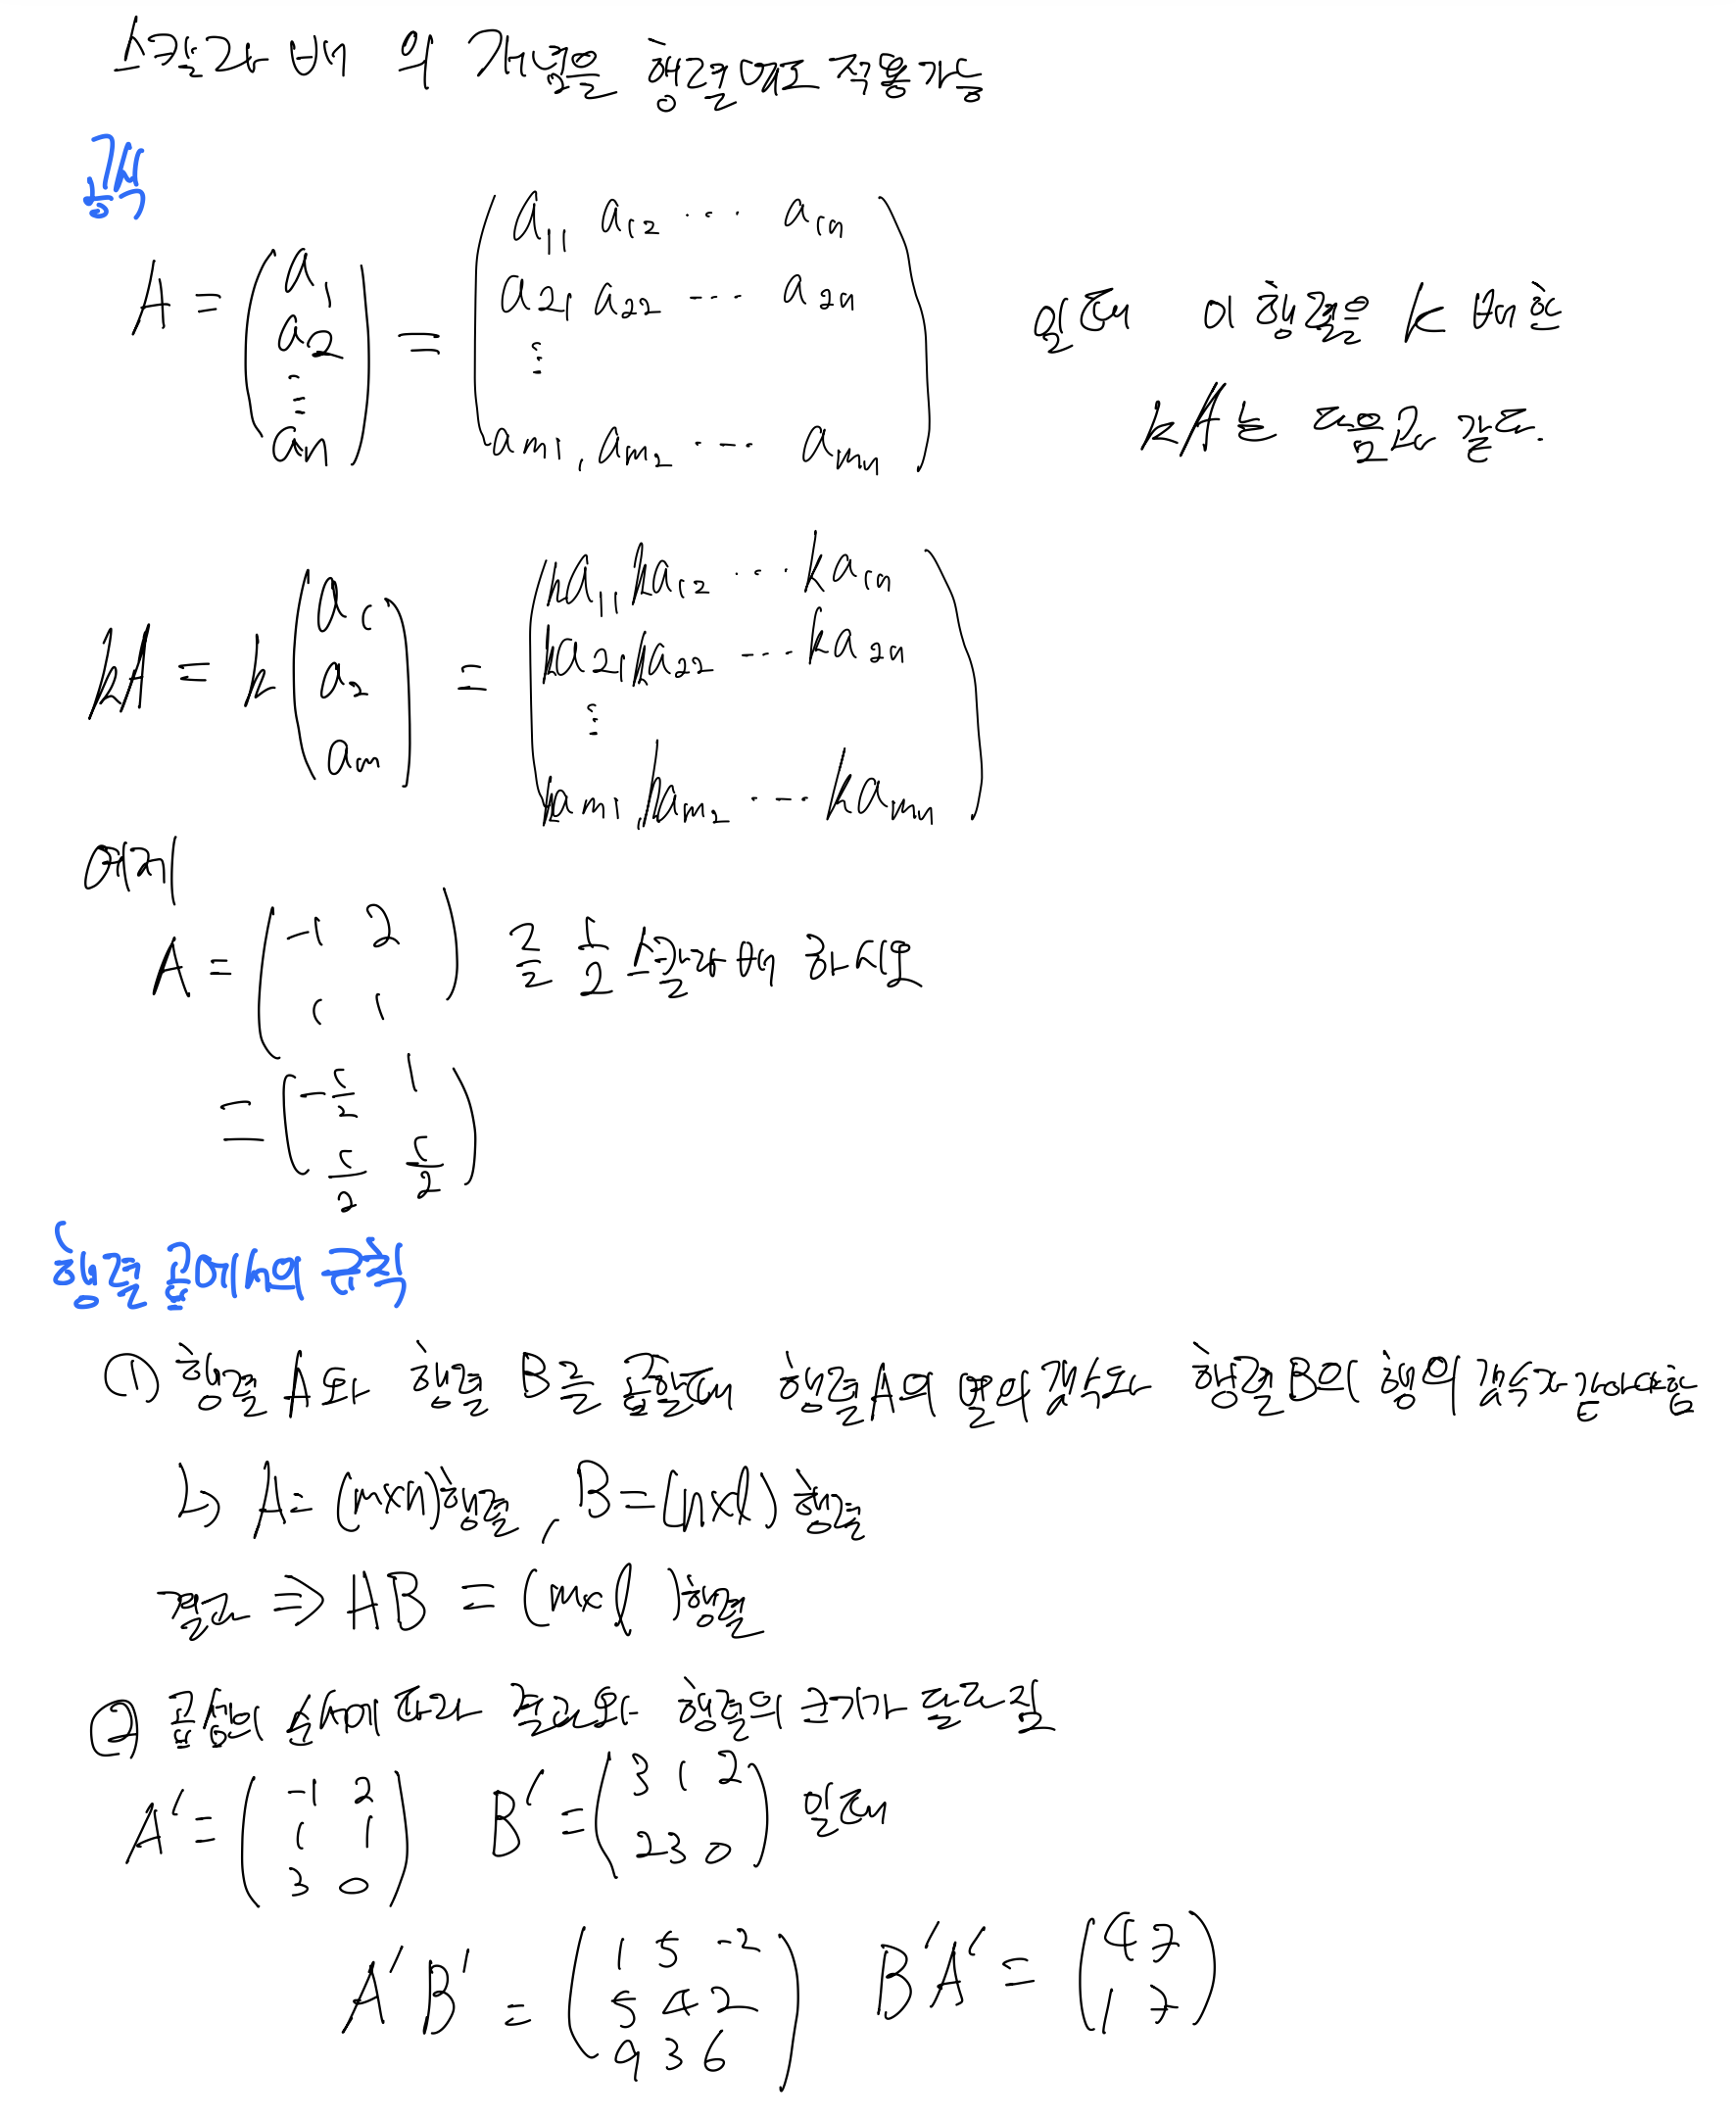 스칼라 배 의 개념을 행렬에도 적용가능
공식
A = (a₁ a₂ ⋮ aₙ) = (a₁₁ a₁₂ ⋯ a₁ₙ
a₂₁ a₂₂ ⋯ a₂ₙ
⋮
aₘ₁, aₘ₂ ⋯ aₘₙ)
일때 이 행렬을 k 배한
kA는 다음과 같다.
kA = k (a₁ a₂ aₘ) = (ka₁₁ ka₁₂ ⋯ ka₁ₙ
ka₂₁ ka₂₂ ⋯ ka₂ₙ
⋮
kaₘ₁, kaₘ₂ ⋯ kaₘₙ)
예제
A = (-1 2
1 1) 를 1/2 스칼라배 하시오
= (-1/2 1
1/2 1/2)
행렬 곱에서의 규칙
① 행렬 A와 행렬 B를 곱할때 행렬A의 열의 갯수와 행렬B의 행의 갯수가 같아야함
↳ A = (m×n)행렬, B = (n×l) 행렬
결과 ⇒ AB = (m×l )행렬
② 곱셈의 순서에 따라 결과와 행렬의 크기가 달라짐
A' = (-1 2
1 1
3 0) B' = (3 1 2
2 3 0) 일때
A'B' = (1 5 -2
5 4 2
9 3 6) B'A' = (4 7
1 7)